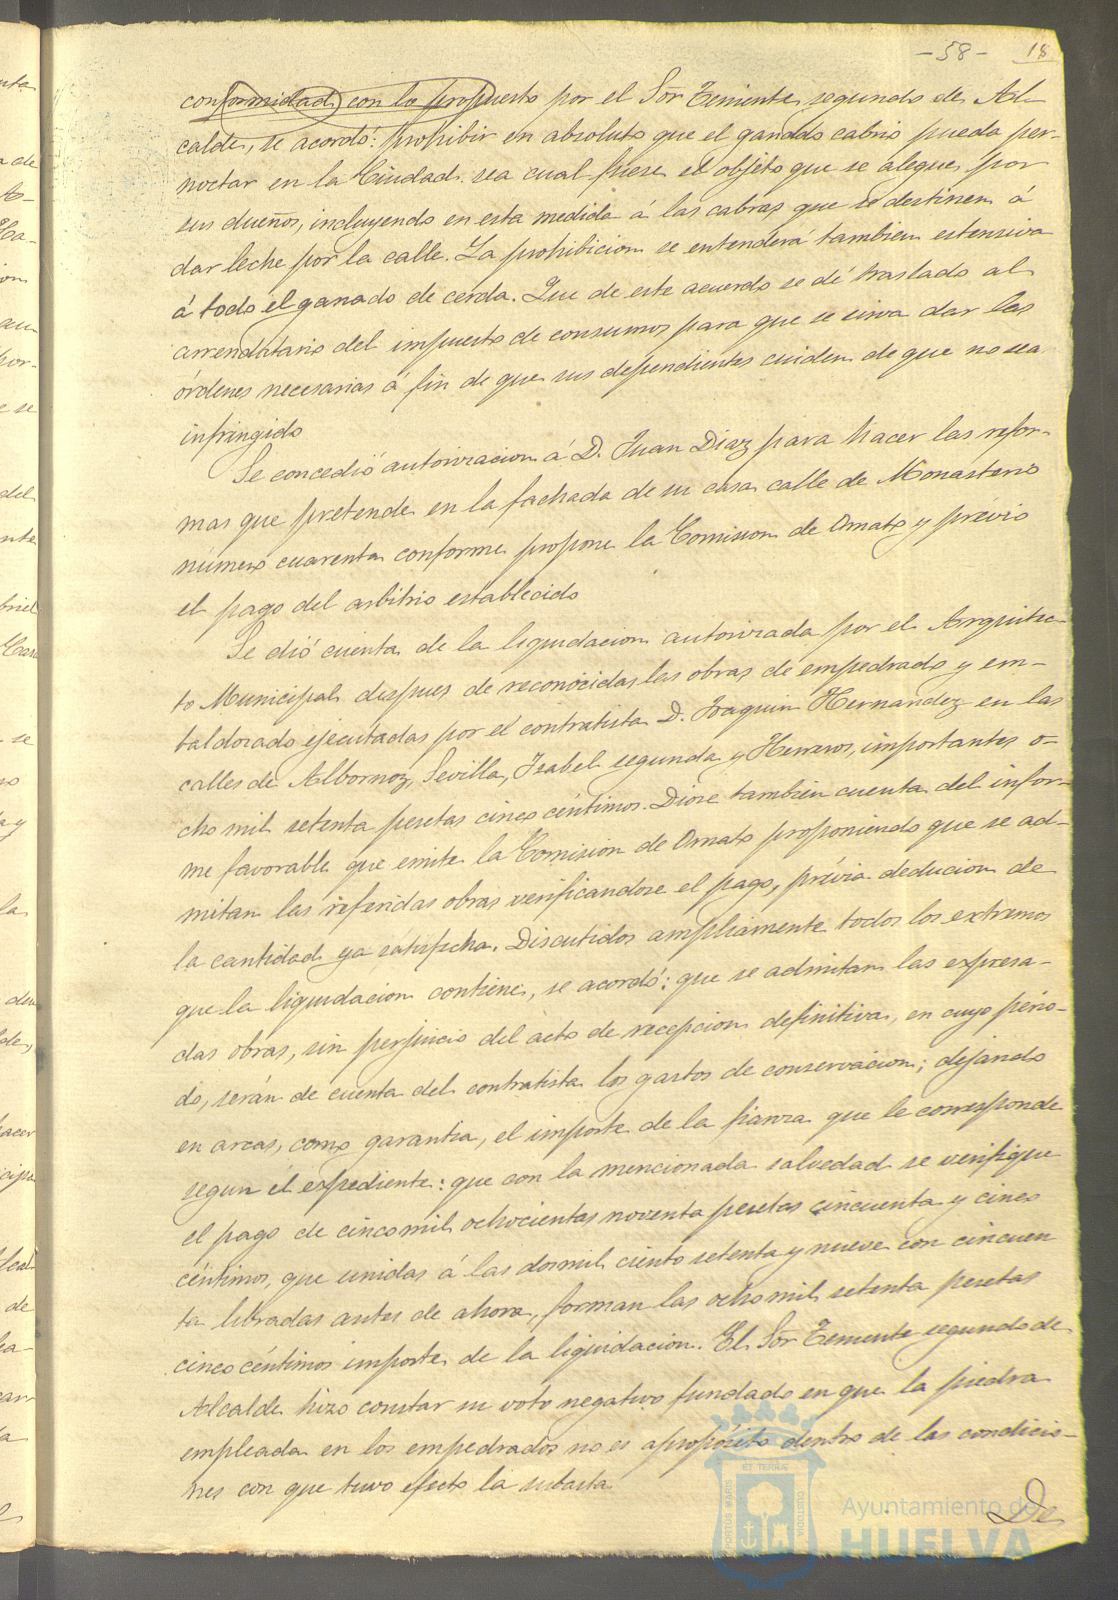 -58- 18
conformidad con lo propuesto por el Sor Teniente segundo de Al-
calde, se acordó: prohibir en absoluto que el ganado cabrio pueda per-
noctar en la Ciudad sea cual fuese el objeto que se alegue por
sus dueños, incluyendo en esta medida á las cabras que se destinen á
dar leche por la calle. La prohibicion se entenderá tambien estensiva
á todo el ganado de cerda. Que de este acuerdo se dé traslado al
arrendatario del impuesto de consumos para que se sirva dar las
órdenes necesarias á fin de que sus dependientes cuiden de que no sea
infringido
Se concedió autorizacion á D. Juan Diaz para hacer las refor-
mas que pretende en la fachada de su casa calle de Monasterio
número cuarenta conforme propone la Comision de Ornato y previo
el pago del arbitrio establecido
Se dió cuenta de la liquidacion autorizada por el Arquitec-
to Municipal despues de reconocidas las obras de empedrado y em-
baldosado ejecutadas por el contratista D. Joaquin Hernandez en las
calles de Albornoz, Sevilla, Isabel segunda y Herreros, importantes o-
cho mil setenta pesetas cinco céntimos. Diose tambien cuenta del infor-
me favorable que emite la Comision de Ornato proponiendo que se ad-
mitan las referidas obras verificandose el pago, prévia deducion de
la cantidad ya satisfecha. Discutidos ampliamente todos los extremos
que la liquidacion contiene, se acordó: que se admitan las expresa-
das obras, sin perjuicio del acto de recepcion definitiva, en cuyo perio-
do, serán de cuenta del contratista los gastos de conservacion; dejando
en arcas, como garantia, el importe de la fianza que le corresponde
segun el expediente: que con la mencionada salvedad se verifique
el pago de cinco mil ochocientas noventa pesetas cincuenta y cinco
céntimos, que unidas á las dos mil ciento setenta y nueve con cincuen
ta libradas antes de ahora, forman las ocho mil setenta pesetas
cinco céntimos importe de la liquidacion. El Sor Teniente segundo de
Alcalde hizo constar su voto negativo fundado en que la piedra
empleada en los empedrados no es apropósito dentro de las condicio-
nes con que tuvo efecto la subasta
De
Ayuntamiento de
HUELVA
PORTUS MARIS
ET TERRÆ
CUSTODIA